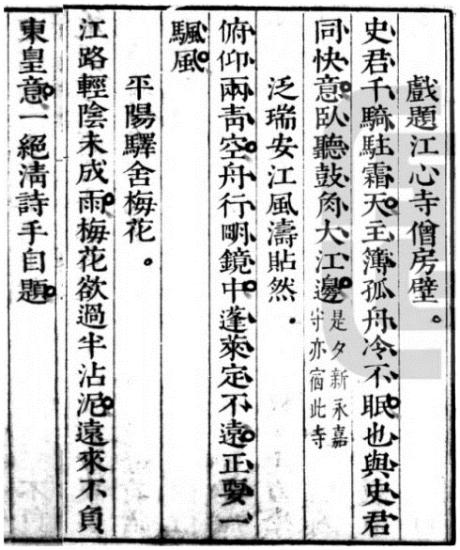 戲題江心寺僧房壁。
史君千騎駐霜天王簿孤舟冷不眠也與史君
同快意臥聽鼓角大江邊是夕新永嘉守亦宿此寺
泛瑞安江風濤貼然．
俯仰兩青空舟行明鏡中蓬萊定不遠正要一
颿風
平陽驛舍梅花。
江路輕陰未成雨梅花欲過半沾泥遠來不負
東皇意一絕清詩手自題